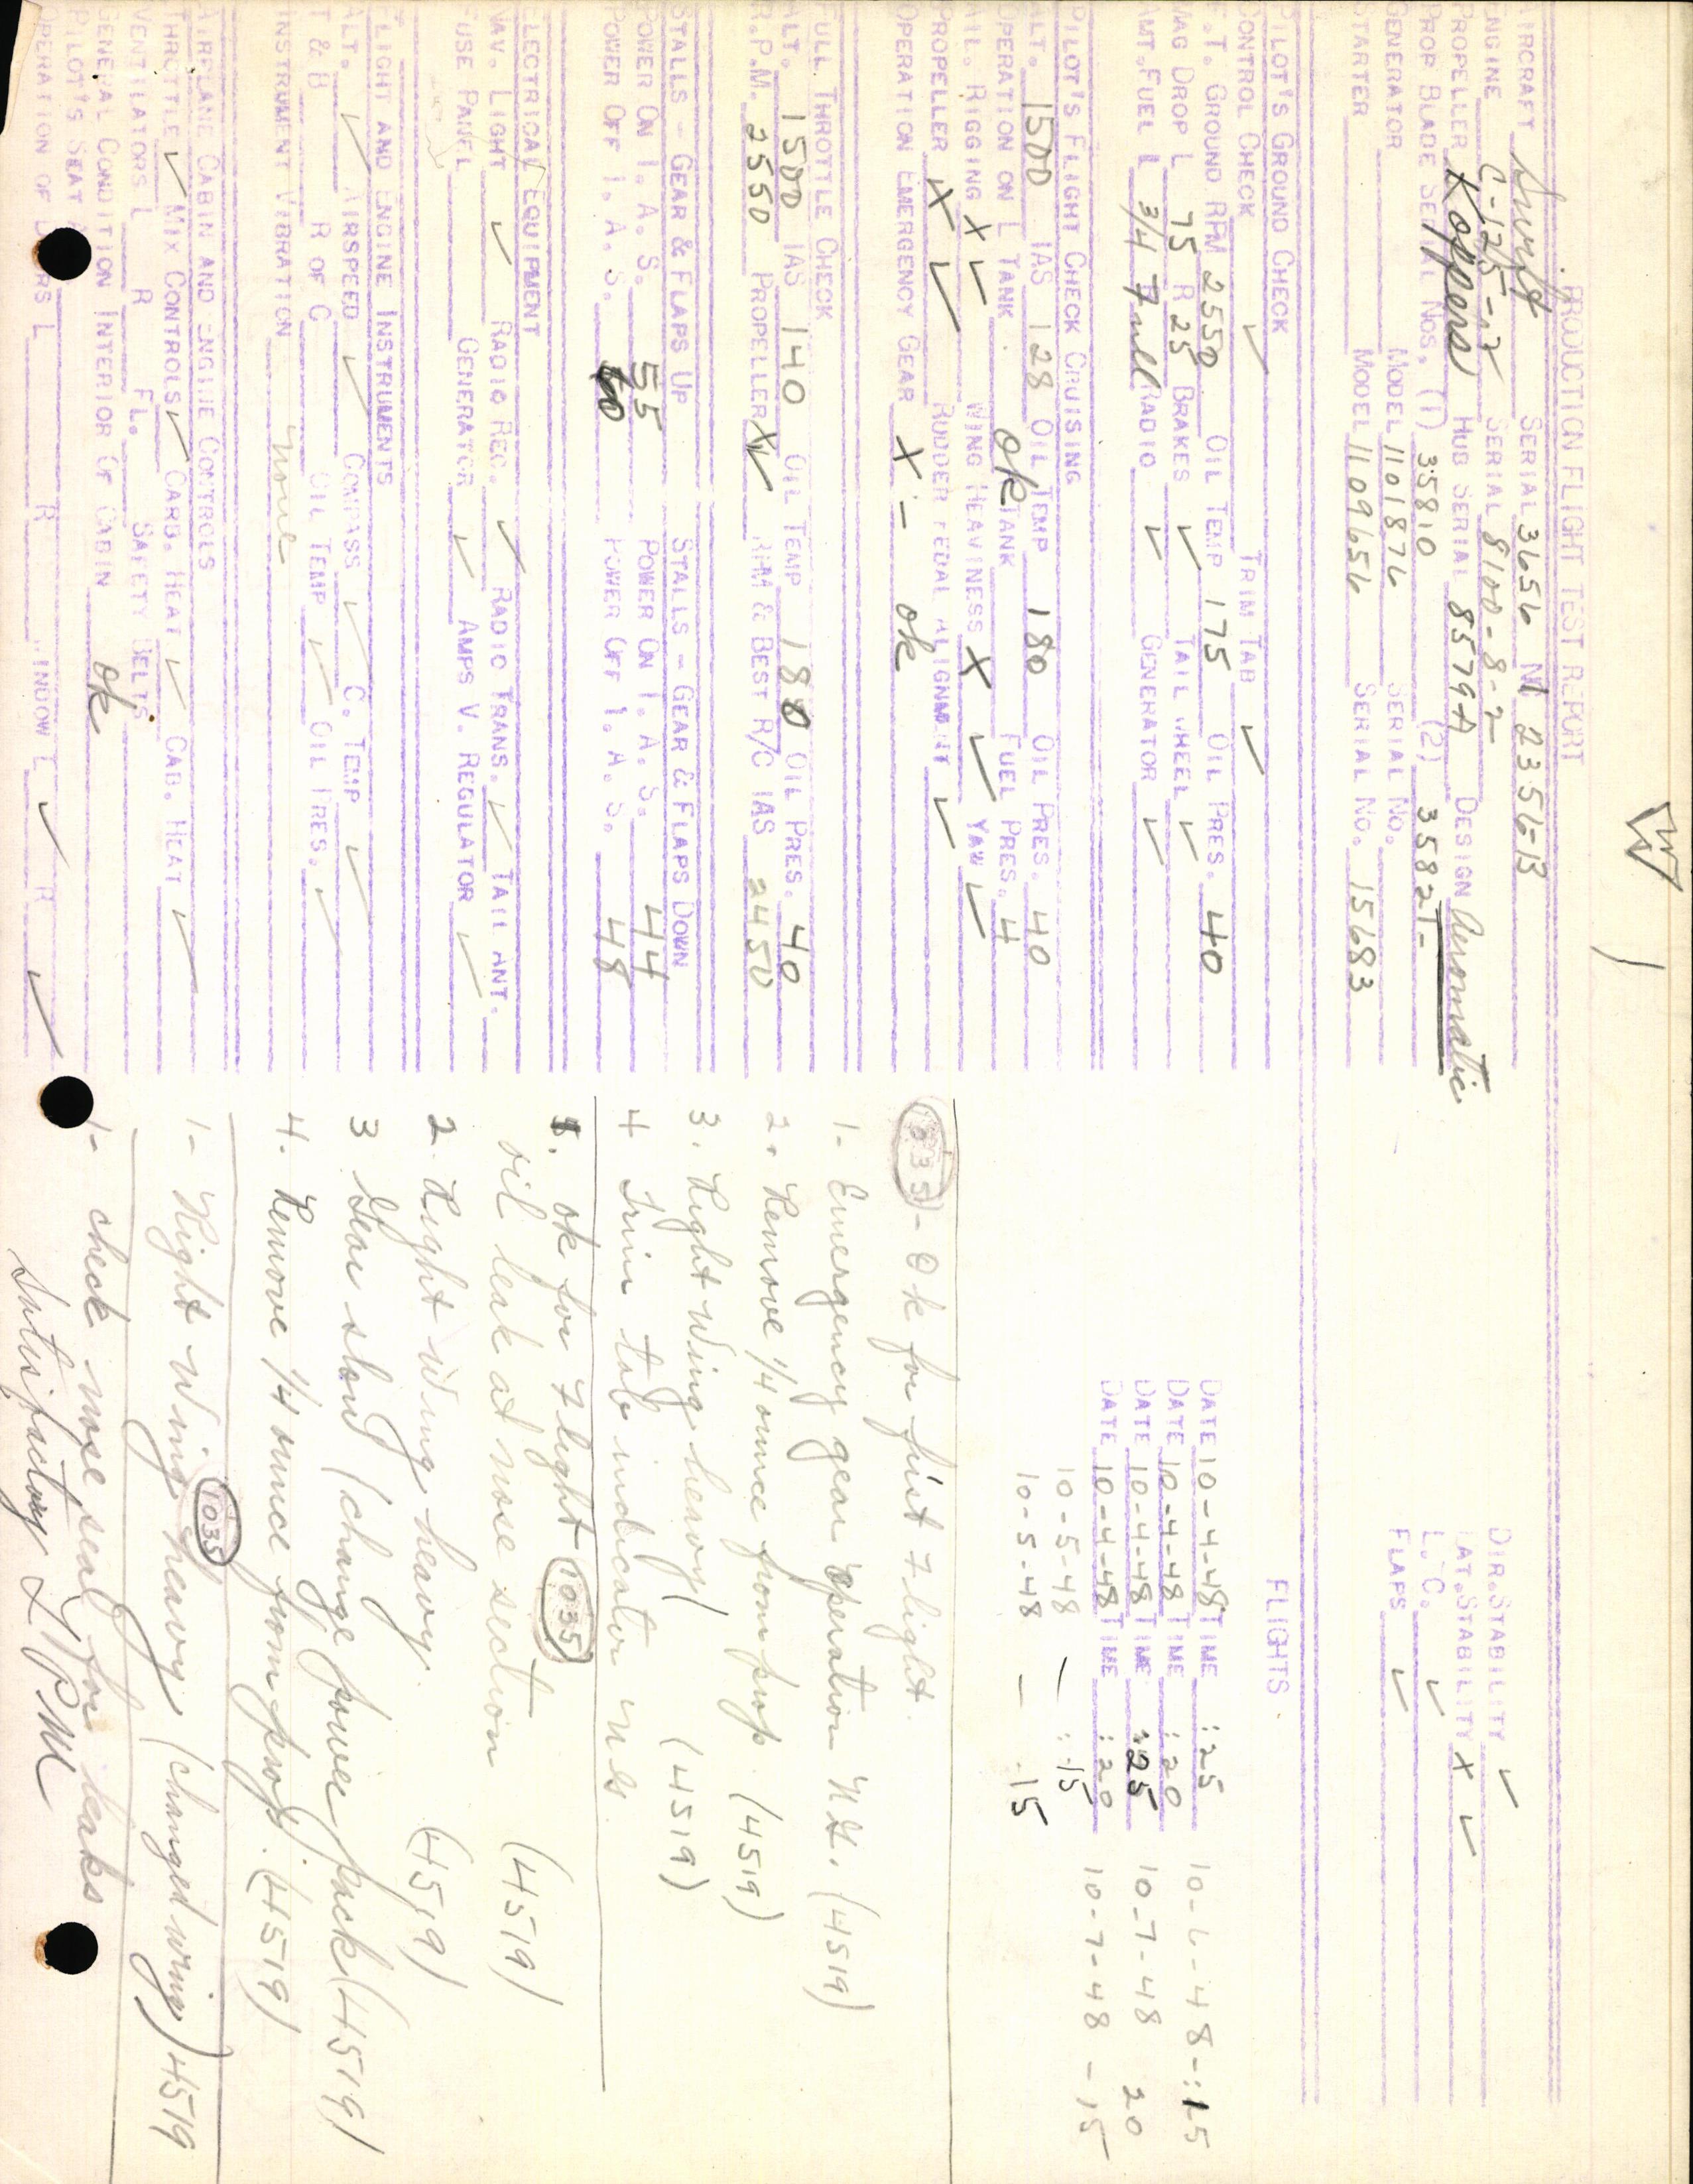 W
PRODUCTION FLIGHT TEST REPORT
AIRCRAFT Swift SERIAL 3656 N 2356B
ENGINE C-125-2 SERIAL 8100-8-2
PROPELLER Koppers HUB SERIAL 8579A DESIGN Aeromatic
PROP BLADE SERIAL NOS. (1) 35810 (2) 35821-
GENERATOR MODEL 1101876 SERIAL NO.
STARTER MODEL 1109656 SERIAL NO. 15683
DIR. STABILITY ✓
LAT. STABILITY X ✓
L. C. ✓
FLAPS ✓
PILOT'S GROUND CHECK
CONTROL CHECK ✓ TRIM TAB ✓
F.T. GROUND RPM 2550 OIL TEMP 175 OIL PRES. 40
MAG DROP L 75 R 25 BRAKES ✓ TAIL WHEEL ✓
AMT. FUEL L 3/4 Full RADIO ✓ GENERATOR ✓
PILOT'S FLIGHT CHECK CRUISING
ALT. 1500 IAS 128 OIL TEMP 180 OIL PRES. 40
OPERATION ON L TANK ok R TANK FUEL PRES. 4
AIL. RIGGING X ✓ WING HEAVINESS X ✓ YAW ✓
PROPELLER X ✓ RUDDER PEDAL ALIGNMENT ✓
OPERATION EMERGENCY GEAR X - ok
FULL THROTTLE CHECK
ALT. 1500 IAS 140 OIL TEMP 180 OIL PRES. 40
R.P.M. 2550 PROPELLER X ✓ RPM & BEST R/C IAS 2450
STALLS - GEAR & FLAPS UP STALLS - GEAR & FLAPS DOWN
POWER ON I. A. S. 55 POWER ON I. A. S. 44
POWER OFF I. A. S. 60 POWER OFF I. A. S. 48
ELECTRICAL EQUIPMENT
NAV. LIGHT ✓ RADIO REC. ✓ RADIO TRANS. ✓ TAIL ANT.
FUSE PANEL GENERATOR ✓ AMPS V. REGULATOR ✓
FLIGHT AND ENGINE INSTRUMENTS
ALT. ✓ AIRSPEED ✓ COMPASS ✓ C. TEMP ✓
T & B R OF C OIL TEMP ✓ OIL PRES. ✓
INSTRUMENT VIBRATION none
AIRPLANE CABIN AND ENGINE CONTROLS
THROTTLE ✓ MIX CONTROLS ✓ CARB. HEAT ✓ CAB. HEAT ✓
VENTILATORS L R FL. SAFETY BELTS
GENERAL CONDITION INTERIOR OF CABIN ok
PILOT'S SEAT
OPERATION OF DOORS L R WINDOW L ✓ R ✓
FLIGHTS
DATE 10-4-48 TIME :25 10-6-48-:15
DATE 10-4-48 TIME :20
DATE 10-4-48 TIME :25 10-7-48 20
DATE 10-4-48 TIME :20 10-7-48 - 15
10-5-48 - :15
10-5-48 - .15
1035 - Ok for first flight.
1- Emergency gear operation N.G. (4519)
2. Remove 1/4 ounce from prop. (4519)
3. Right wing heavy (4519)
4 Trim tab indicator n.s.
1. ok for flight 1035
oil leak at nose section (4519)
2. Right wing heavy. (4519)
3 Gear slow (change power pack (4519)
4. Remove 1/4 ounce from prop. (4519)
1035
1- Right wing heavy (changed wings) 4519
1- check nose seal for leaks
Satisfactory